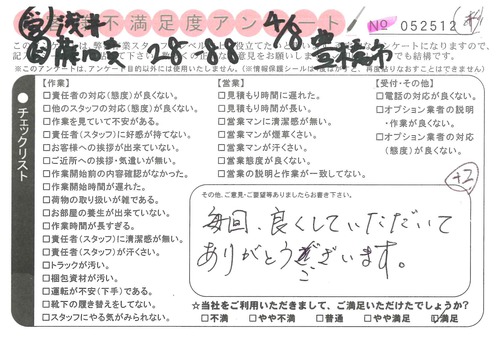 不満足度アンケート
No 052512
4/8
28-88 豊橋市
※このアンケートは、アンケート目的以外には使用いたしません。
チェックリスト
【作業】
□責任者の対応(態度)が良くない。
□他のスタッフの対応(態度)が良くない。
□作業を見ていて不安がある。
□責任者(スタッフ)に好感が持てない。
□お客様への挨拶が出来ていない。
□ご近所への挨拶・気遣いが無い。
□作業開始前の内容確認がなかった。
□作業開始時間が遅れた。
□荷物の取り扱いが雑である。
□お部屋の養生が出来ていない。
□作業時間が長すぎる。
□責任者(スタッフ)に清潔感が無い。
□責任者(スタッフ)が汗くさい。
□トラックが汚い。
□梱包資材が汚い。
□運転が不安(下手)である。
□靴下の履き替えをしてない。
□スタッフにやる気がみられない。
【営業】
□見積もり時間に遅れた。
□見積もり時間が長い。
□営業マンに清潔感が無い。
□営業マンが煙草くさい。
□営業マンが汗くさい。
□営業態度が良くない。
□営業の説明と作業が一致してない。
【受付・その他】
□電話の対応が良くない。
□オプション業者の説明
・作業が良くない。
□オプション業者の対応
(態度)が良くない。
+2
その他、ご意見・ご要望等ありましたらお書き下さい。
毎回、良くしていただいて
ありがとうございます。
☆当社をご利用いただきまして、ご満足いただけたでしょうか?
□不満 □やや不満 □普通 □やや満足 □満足